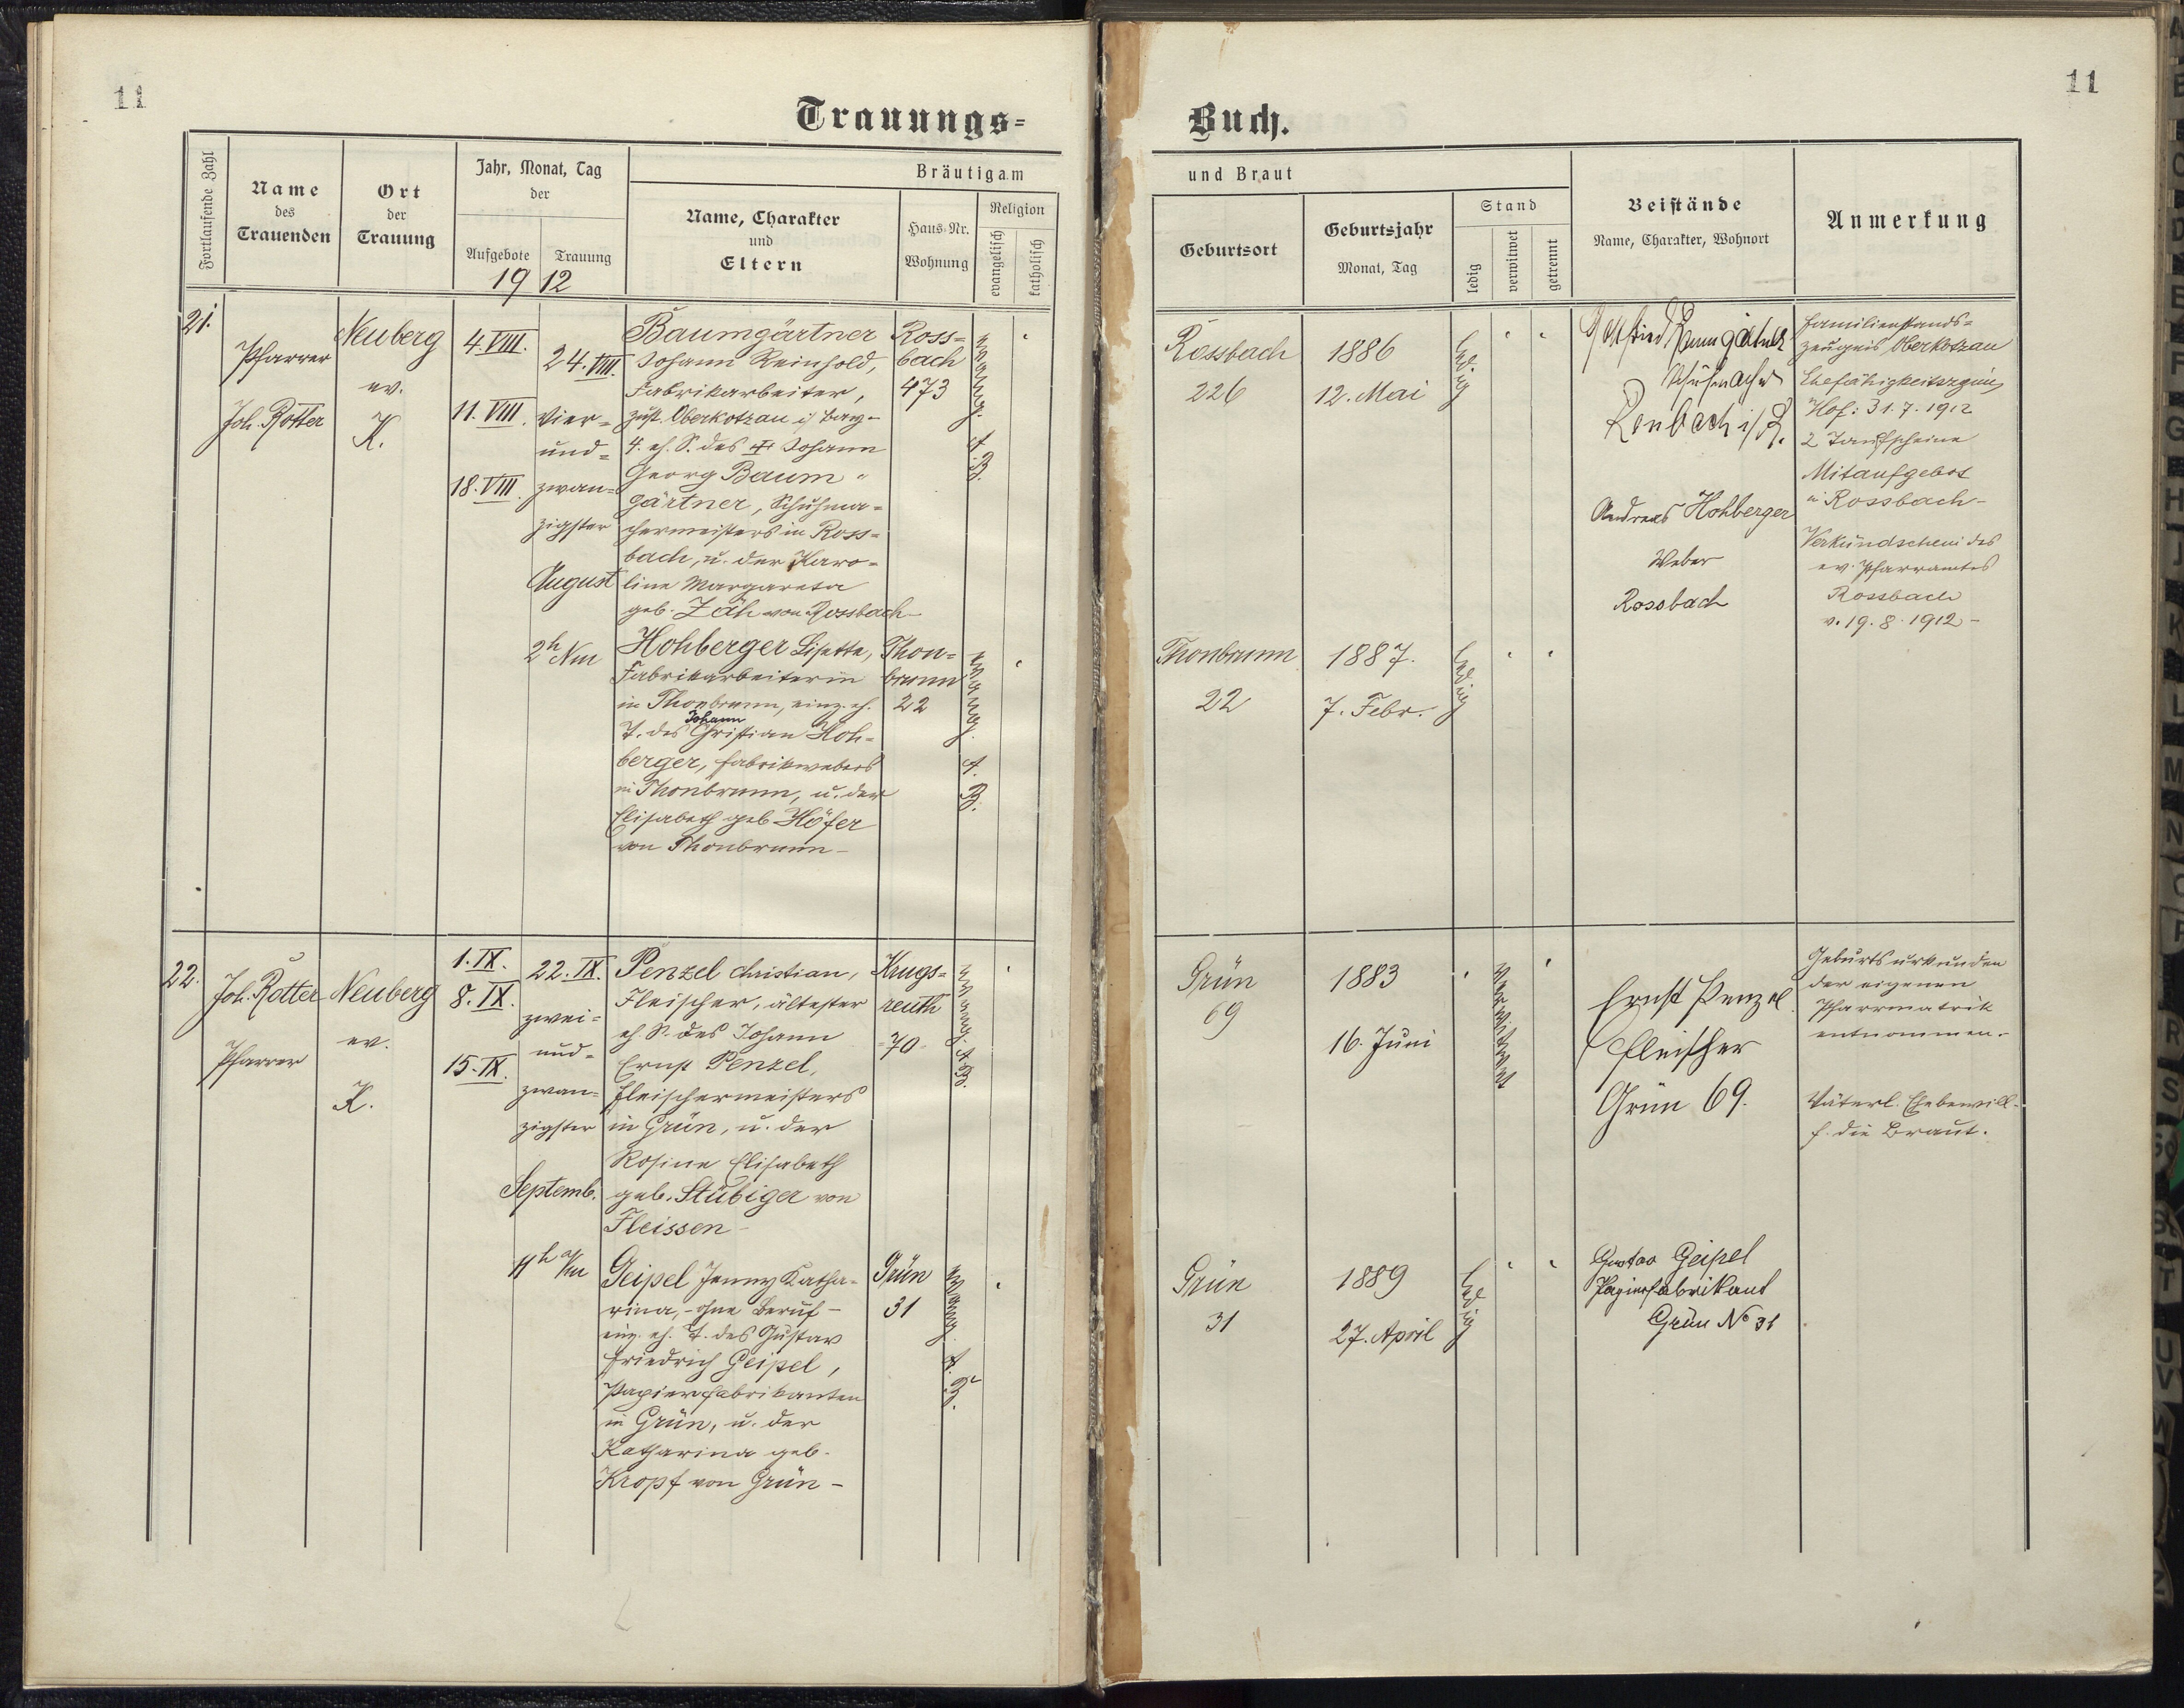 11
11
Trauungs=
Buch.
Fortlaufende Zahl
Name
des
Trauenden
Ort
der
Trauung
Jahr, Monat, Tag
der
Aufgebote
Trauung
1912
Bräutigam
Name, Charakter
und
Eltern
Haus-Nr.
Wohnung
Religion
evangelisch
katholisch
und Braut
Geburtsort
Geburtsjahr
Monat, Tag
Stand
ledig
verwitwet
getrennt
Beistände
Name, Charakter, Wohnort
Anmerkung
21.
Pfarrer
Joh. Rotter
Neuberg
ev.
K.
4. VIII.
11. VIII.
18. VIII.
24. VIII.
Vier=
und=
zwan=
zigster
August
2h Nm
Baumgärtner
Johann Reinhold,
Fabrikarbeiter,
zust. Oberkotzau i/ Bay-
4. eh. S. des Johann
Georg Baum=
gärtner, Schuhma=
chermeisters in Ross=
bach, u. der Karo=
line Margareta
geb. Zäh von Rossbach
Ross=
bach
473
evang.
A.
B.
Hohberger Lisette,
Fabrikarbeiterin
in Thonbrunn, einz. eh.
Johann
T. des Christian Hoh=
berger, Fabrikwebers
in Thonbrunn, u. der
Elisabeth geb Höfer
von Thonbrunn-
Thon=
brunn
22
evang.
A.
B.
Rossbach
226
1886
12. Mai
ledig
Thonbrunn
22
1887.
7. Febr.
ledig
Gottfried Baumgärtner
Schuhmacher
Andreas Hohberger
Weber
Rossbach
Familienstands=
zeugnis Oberkotzau
Ehefähigkeitszgnis
Hof: 31.7.1912
2 Taufscheine
Mitaufgebot
in Rossbach-
Verkündschein des
ev. Pfarramtes
Rossbach
v. 19.8.1912-
22.
Joh. Rotter
Pfarrer
Neuberg
ev.
K.
1. IX.
8. IX.
15. IX.
22. IX.
zwei=
und=
zwan=
zigster
Septemb.
11h Vm
Penzel Christian,
Fleischer, ältester
eh. S. des Johann
Ernst Penzel,
Fleischermeisters
in Grün, u. der
Rosine Elisabeth
geb. Stübiger von
Fleissen-
Krugs=
reuth
-70-
evang. A. B.
Geipel Jenny Katha=
rina, - ohne Beruf -
einz. eh. T. des Gustav
Friedrich Geipel,
Papierfabrikanten
in Grün, u. der
Katharina geb.
Kropf von Grün-
Grün
31
evang.
A.
B.
Grün
69
1883
16. Juni
verwitwet
Grün
31
1889
27. April
ledig
Ernst Penzel
Fleischer
Grün 69.
Gustav Geipel
Papierfabrikant
Grün No 31
Geburtsurkunden
der eigenen
Pfarrmatrik
entnommen.-
Väterl. Ehebewill.
f. die Braut.